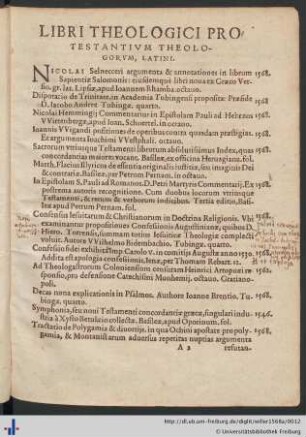 LIBRI THEOLOGICI PRO-
TESTANTIVM THEOLO-
GORVM, LATINI.
NICOLAI Selnecceri argumenta & annotationes in librum 1568.
Sapientiæ Salomonis: eiusdemque libri noua ex Græco Ver-
sio. gr. lat. Lipsiæ, apud Ioannem Rhamba. octauo.
Disputatio de Trinitate, in Academia Tubingensi proposita: Præside 1568.
D. Iacobo Andreæ. Tubingæ. quarto.
Nicolai Hemmingij Commentarius in Epistolam Pauli ad Hebræos 1568.
VVitenbergæ, apud Ioan. Schuertel. in octauo.
Ioannis VVigandi positiones de operibus contra quendam præstigias. 1568.
Ex argumenta Ioachimi VVestphali. octauo.
Sacrorum vtriusque Testamenti librorum absolutissimus Index, quas 1568.
concordantias maiores vocant. Basileæ, ex officina Heruagiana. fol.
Matth. Flacius Illyricus de essentia originalis iustitiæ, seu imaginis Dei 1568.
& contrariæ. Basileæ, per Petrum Pernam. in octauo.
In Epistolam S. Pauli ad Romanos, D. Petri Martyris Commentarij. Ex 1568
postrema autoris recognitione. Cum duobus locorum vtriusque
Testamenti, & rerum & verborum indicibus. Tertia editio. Basi-
leæ apud Petrum Pernam. fol.
Consensus Iesuitarum & Christianorum in Doctrina Religionis. Vbi 1568.
examinantur propositiones Confessionis Augustinianæ, quibus D.
Hoem. Torensis, summam totius Iesuiticæ Theologiæ complecti
voluit. Autore VVilhelmo Bidenbachio. Tubingæ. quarto.
Confessio fidei exhibita Imp. Carolo V. in comitijs Augustæ anno 1530. 1568.
Addita est apologia confessionis. Ienæ, per Thomam Rebart. 12.
Ad Theologastrorum Coloniensium censuram Heinrici Artopœi re 1568.
sponsio, pro defensione Catechismi Monhemij. octauo. Gratiano-
poli.
Decas nona explicationis in Psalmos. Authore Ioanne Brentio. Tu- 1568.
bingæ. quarto.
Symphonia, seu noui Testamenti concordantiæ græcæ, singulari indu- 1546.
stria à Xysto Betuleio collectæ. Basileæ, apud Oporinum. fol.
Tractatio de Polygamia & diuortijs, in qua Ochini apostatæ propoly- 1568.
gamia, & Montanistarum aduersus repetitas nuptias argumenta
A 2 refutan-
http://dl.ub.uni-freiburg.de/diglit/willer1568a/0012
© Universitätsbibliothek Freiburg